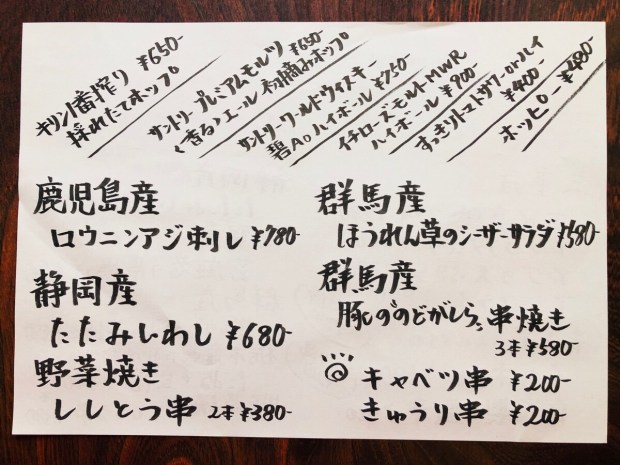 キリン1番搾り ¥650-
採れたてホップ
サントリープレミアムモルツ ¥650-
〈香る〉エール 初摘みホップ
サントリーワールドウィスキー
碧Ao ハイボール ¥750
イチローズモルトMWR
ハイボール ¥900-
すっきりトマトサワーorハイ
¥400-
ホッピー ¥480-
鹿児島産
ロウニンアジ刺し ¥780-
静岡産
たたみいわし ¥680-
野菜焼き
ししとう串 2本 ¥380-
群馬産
ほうれん草のシーザーサラダ ¥580-
群馬産
豚ののどがしら 串焼き
3本 ¥580-
キャベツ串 ¥200-
きゅうり串 ¥200-